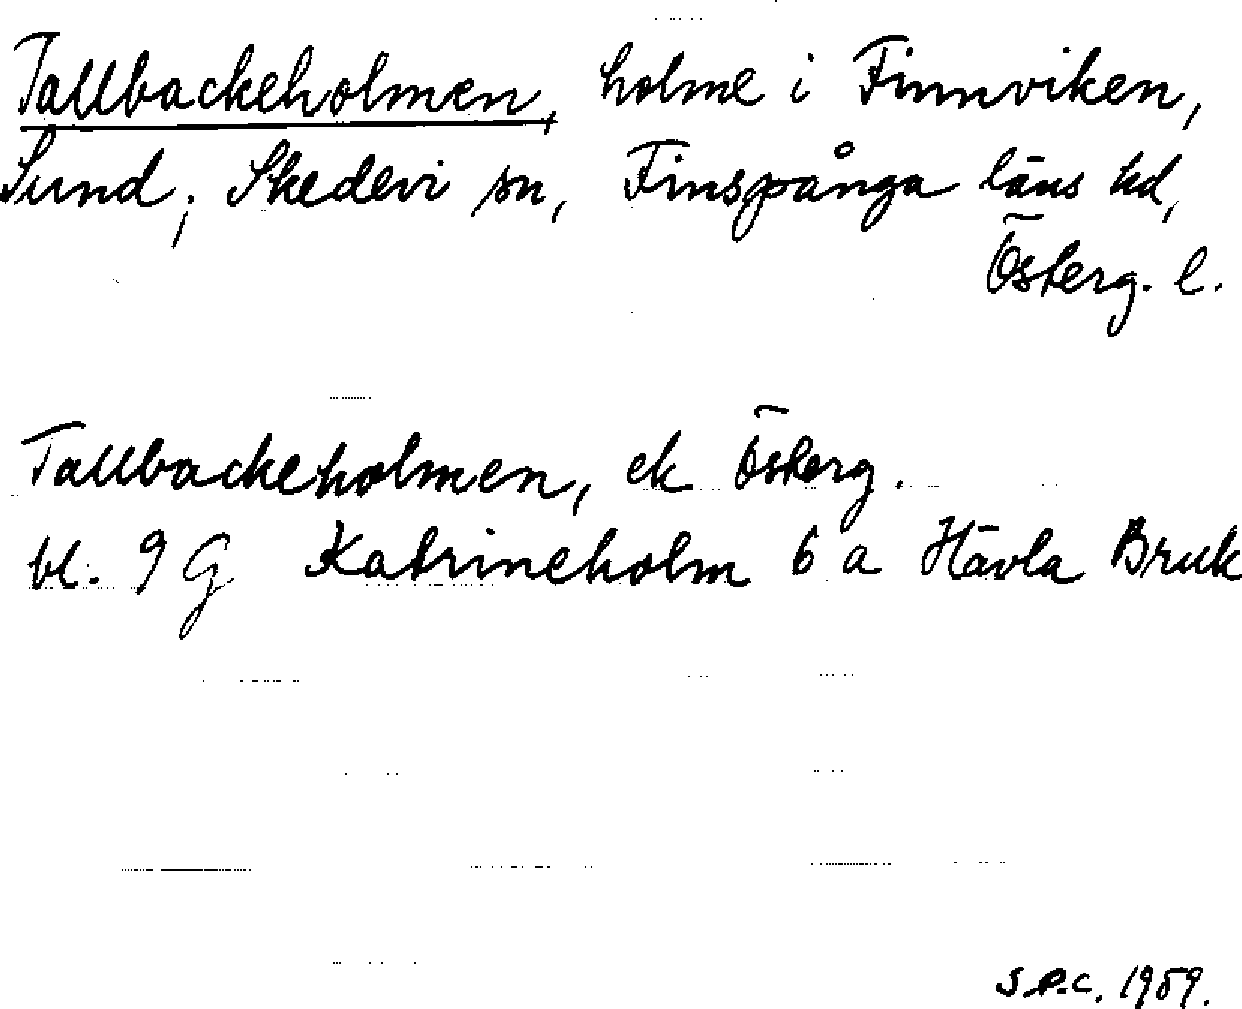 Tallbackeholmen, holme i Finnviken,
Sund; Skedevi sn, Finspånga läns hd,
Österg. l.
Tallbackeholmen, ek Österg.
bl. 9 G Katrineholm 6 a Hävla Bruk
S.P.C. 1959.